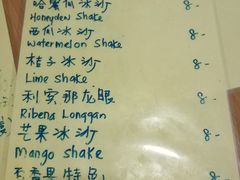 哈蜜瓜冰沙 8-
Honeydew Shake
西瓜冰沙 8-
Watermelon Shake
桔子冰沙 8-
Lime Shake
利宾那龙眼 8-
Ribena Longgan
芒果冰沙 8-
Mango Shake
百香果特色 8-